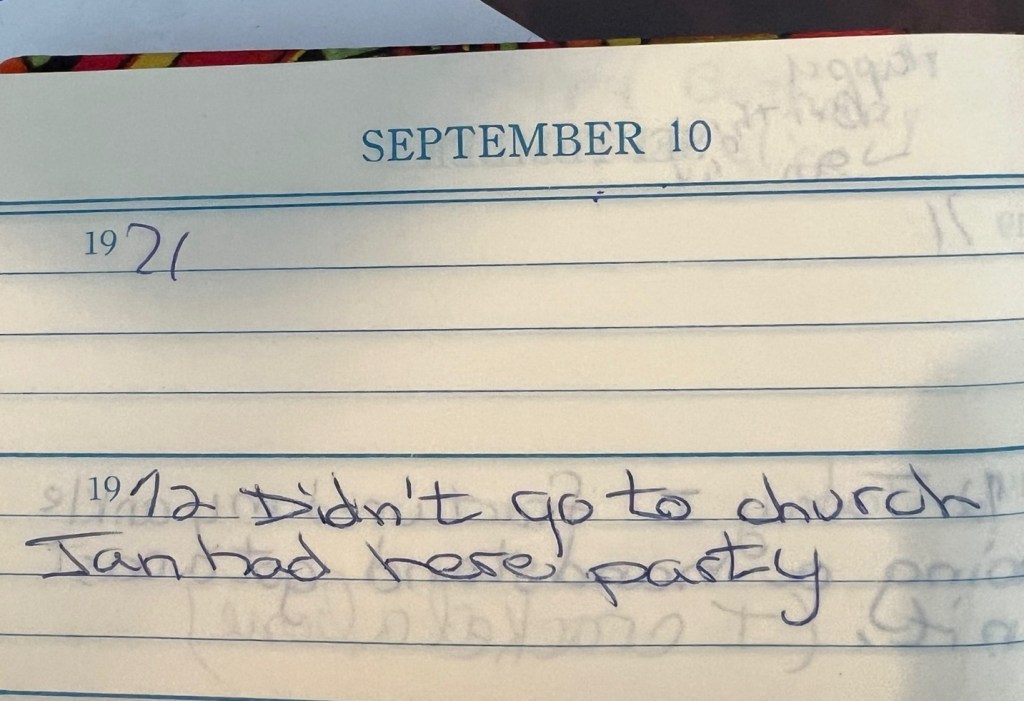 SEPTEMBER 10
1971
1972 Didn't go to church
Jan had here party